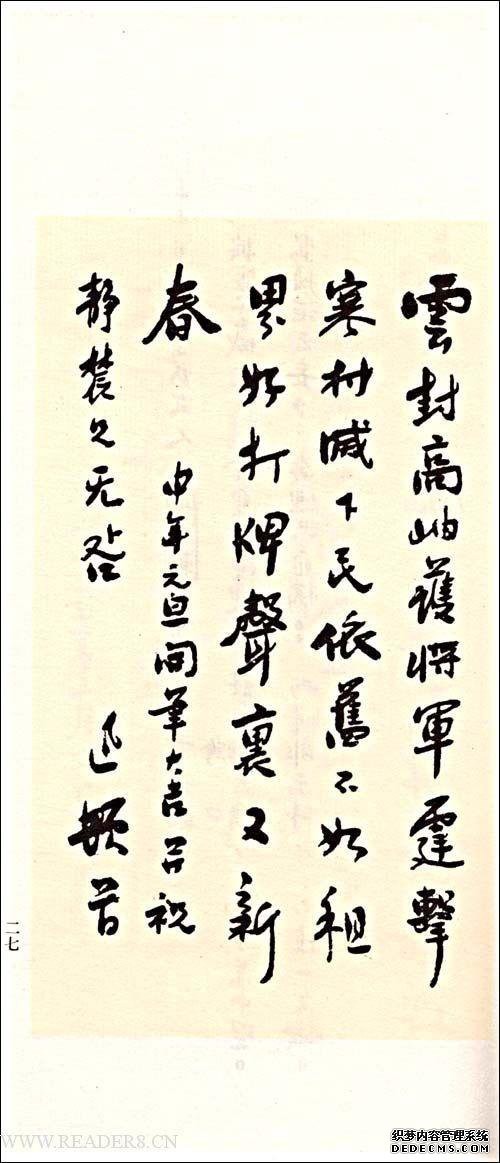 雲封高岫護將軍霆擊
寒村滅下民依舊不如租
界好打牌聲裏又新
春 申年元旦開筆大吉并祝
靜農兄无咎 迅頓首
二七
WWW.READER8.CN
织梦内容管理系统
DEDECMS.COM